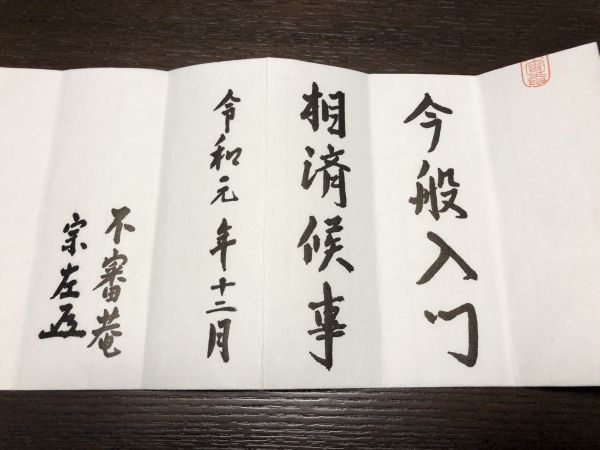 今般入门
相済候事
令和元年十二月
不審菴
宗左